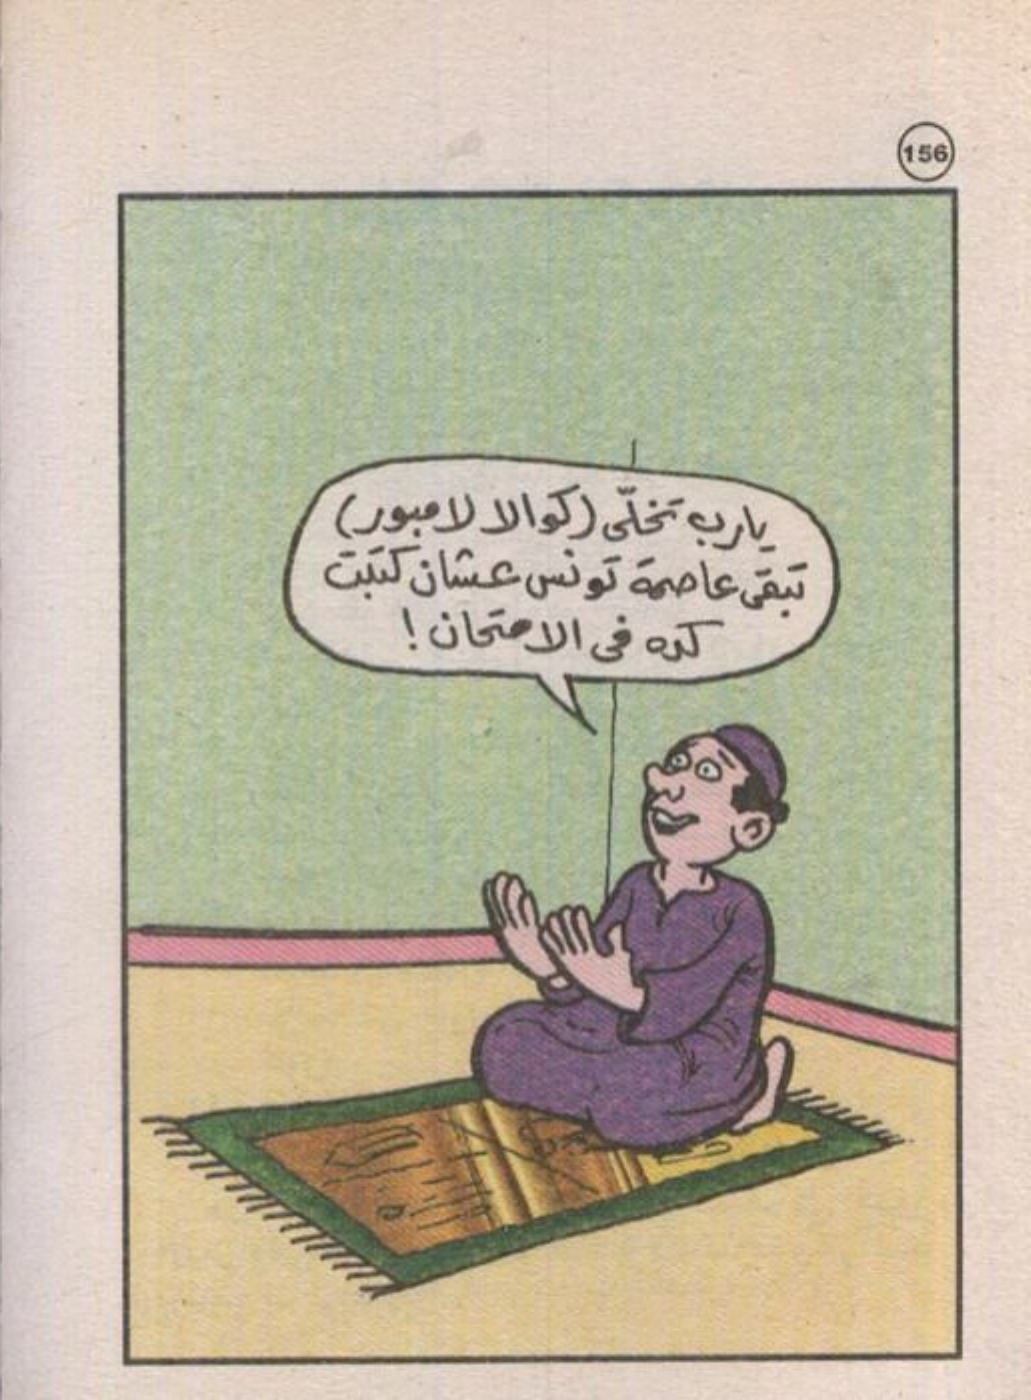 156
يارب تخلّى (كوالا لامبور)
تبقى عاصمة تونس عشان كتبت
كده فى الامتحان!